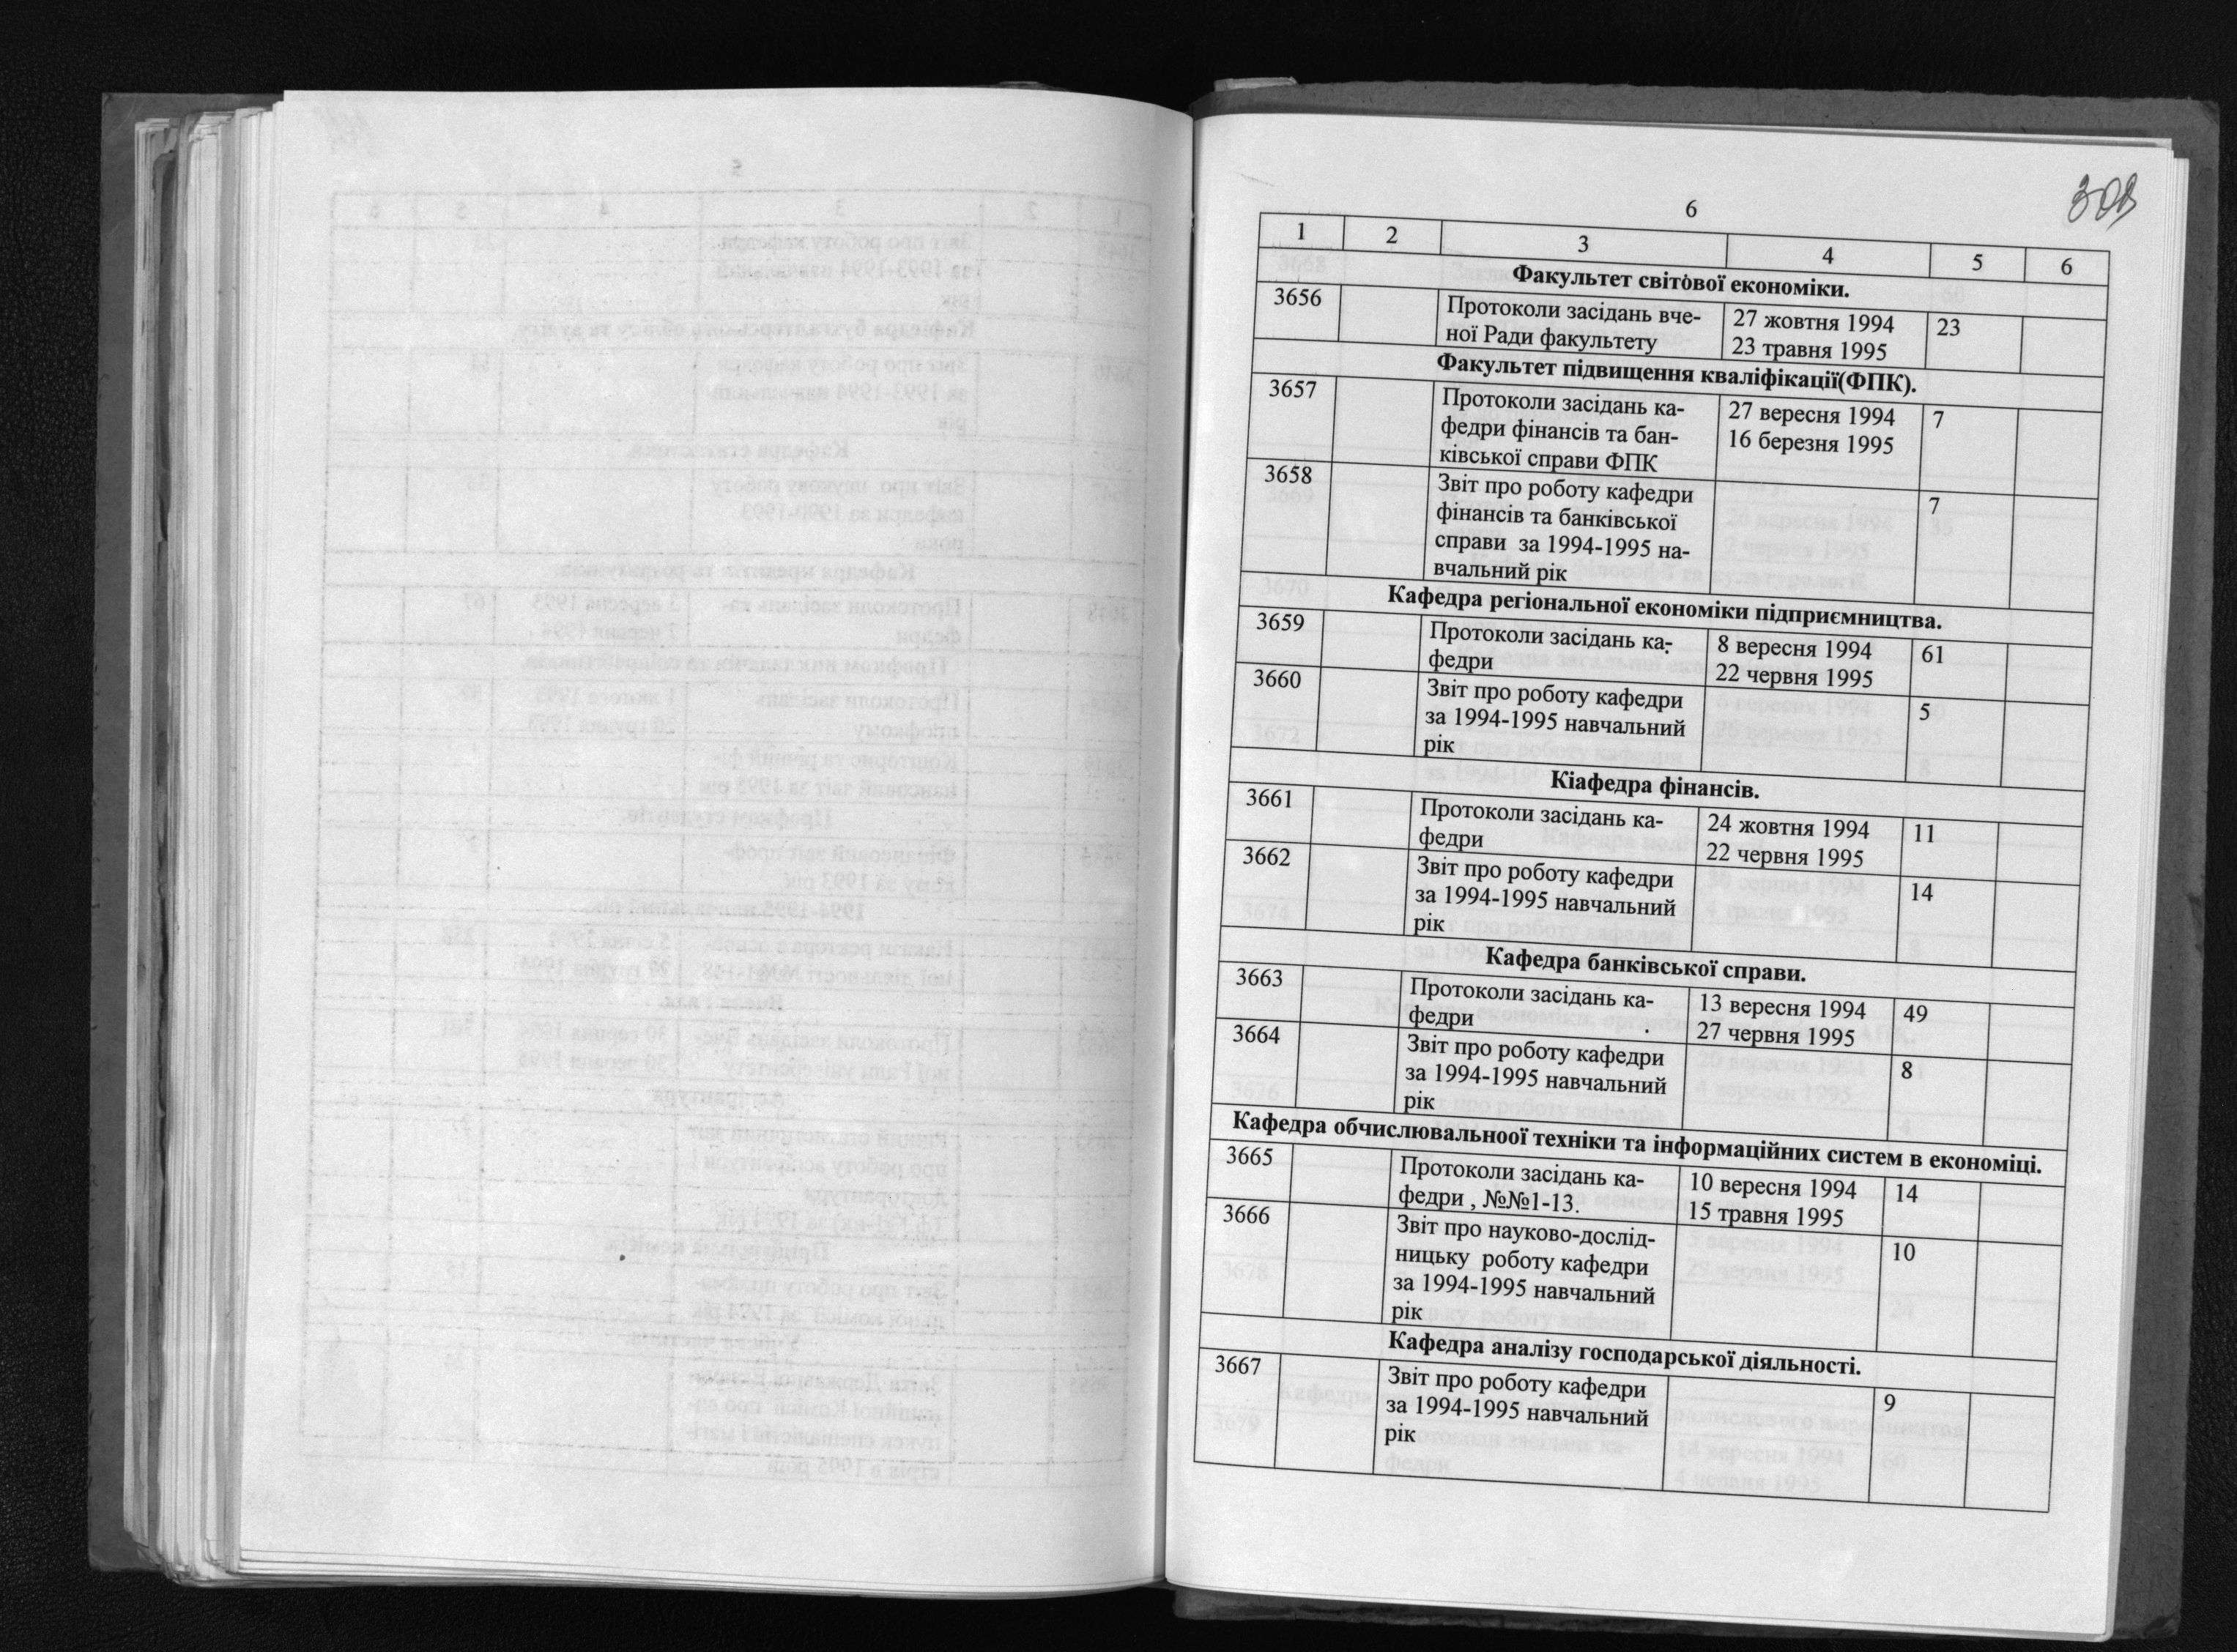 308
6
1 2 3 4 5 6
Факультет світової економіки.
3656 Протоколи засідань вче- 27 жовтня 1994 23
ної Ради факультету 23 травня 1995
Факультет підвищення кваліфікації(ФПК).
3657 Протоколи засідань ка- 27 вересня 1994 7
федри фінансів та бан- 16 березня 1995
ківської справи ФПК
3658 Звіт про роботу кафедри 7
фінансів та банківської
справи за 1994-1995 на-
вчальний рік
Кафедра регіональної економіки підприємництва.
3659 Протоколи засідань ка- 8 вересня 1994 61
федри 22 червня 1995
3660 Звіт про роботу кафедри 5
за 1994-1995 навчальний
рік
Кіафедра фінансів.
3661 Протоколи засідань ка- 24 жовтня 1994 11
федри 22 червня 1995
3662 Звіт про роботу кафедри 14
за 1994-1995 навчальний
рік
Кафедра банківської справи.
3663 Протоколи засідань ка- 13 вересня 1994 49
федри 27 червня 1995
3664 Звіт про роботу кафедри 8
за 1994-1995 навчальний
рік
Кафедра обчислювальноої техніки та інформаційних систем в економіці.
3665 Протоколи засідань ка- 10 вересня 1994 14
федри , №№1-13. 15 травня 1995
3666 Звіт про науково-дослід- 10
ницьку роботу кафедри
за 1994-1995 навчальний
рік
Кафедра аналізу господарської діяльності.
3667 Звіт про роботу кафедри 9
за 1994-1995 навчальний
рік